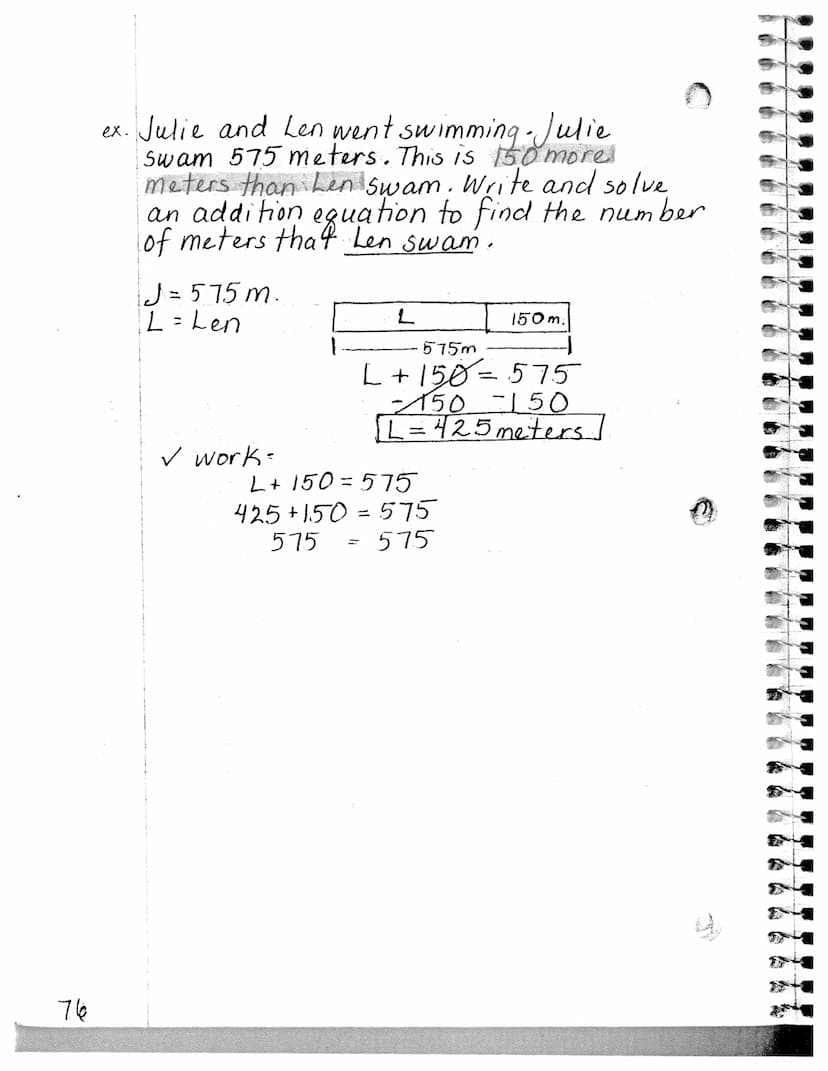 ex. Julie and Len went swimming. Julie
swam 575 meters. This is 150 more
meters than Len swam. Write and solve
an addition equation to find the number
of meters that Len swam.
J = 575 m.
L = Len
L 150 m.
575m
L + 150 = 575
-150 -150
L = 425 meters
✓ work:
L + 150 = 575
425 + 150 = 575
575 = 575
76